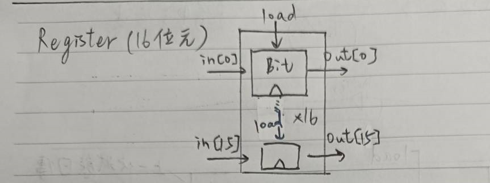 load
Register (16位元)
in[0]
Bit
out[0]
load
×16
in[15]
out[15]